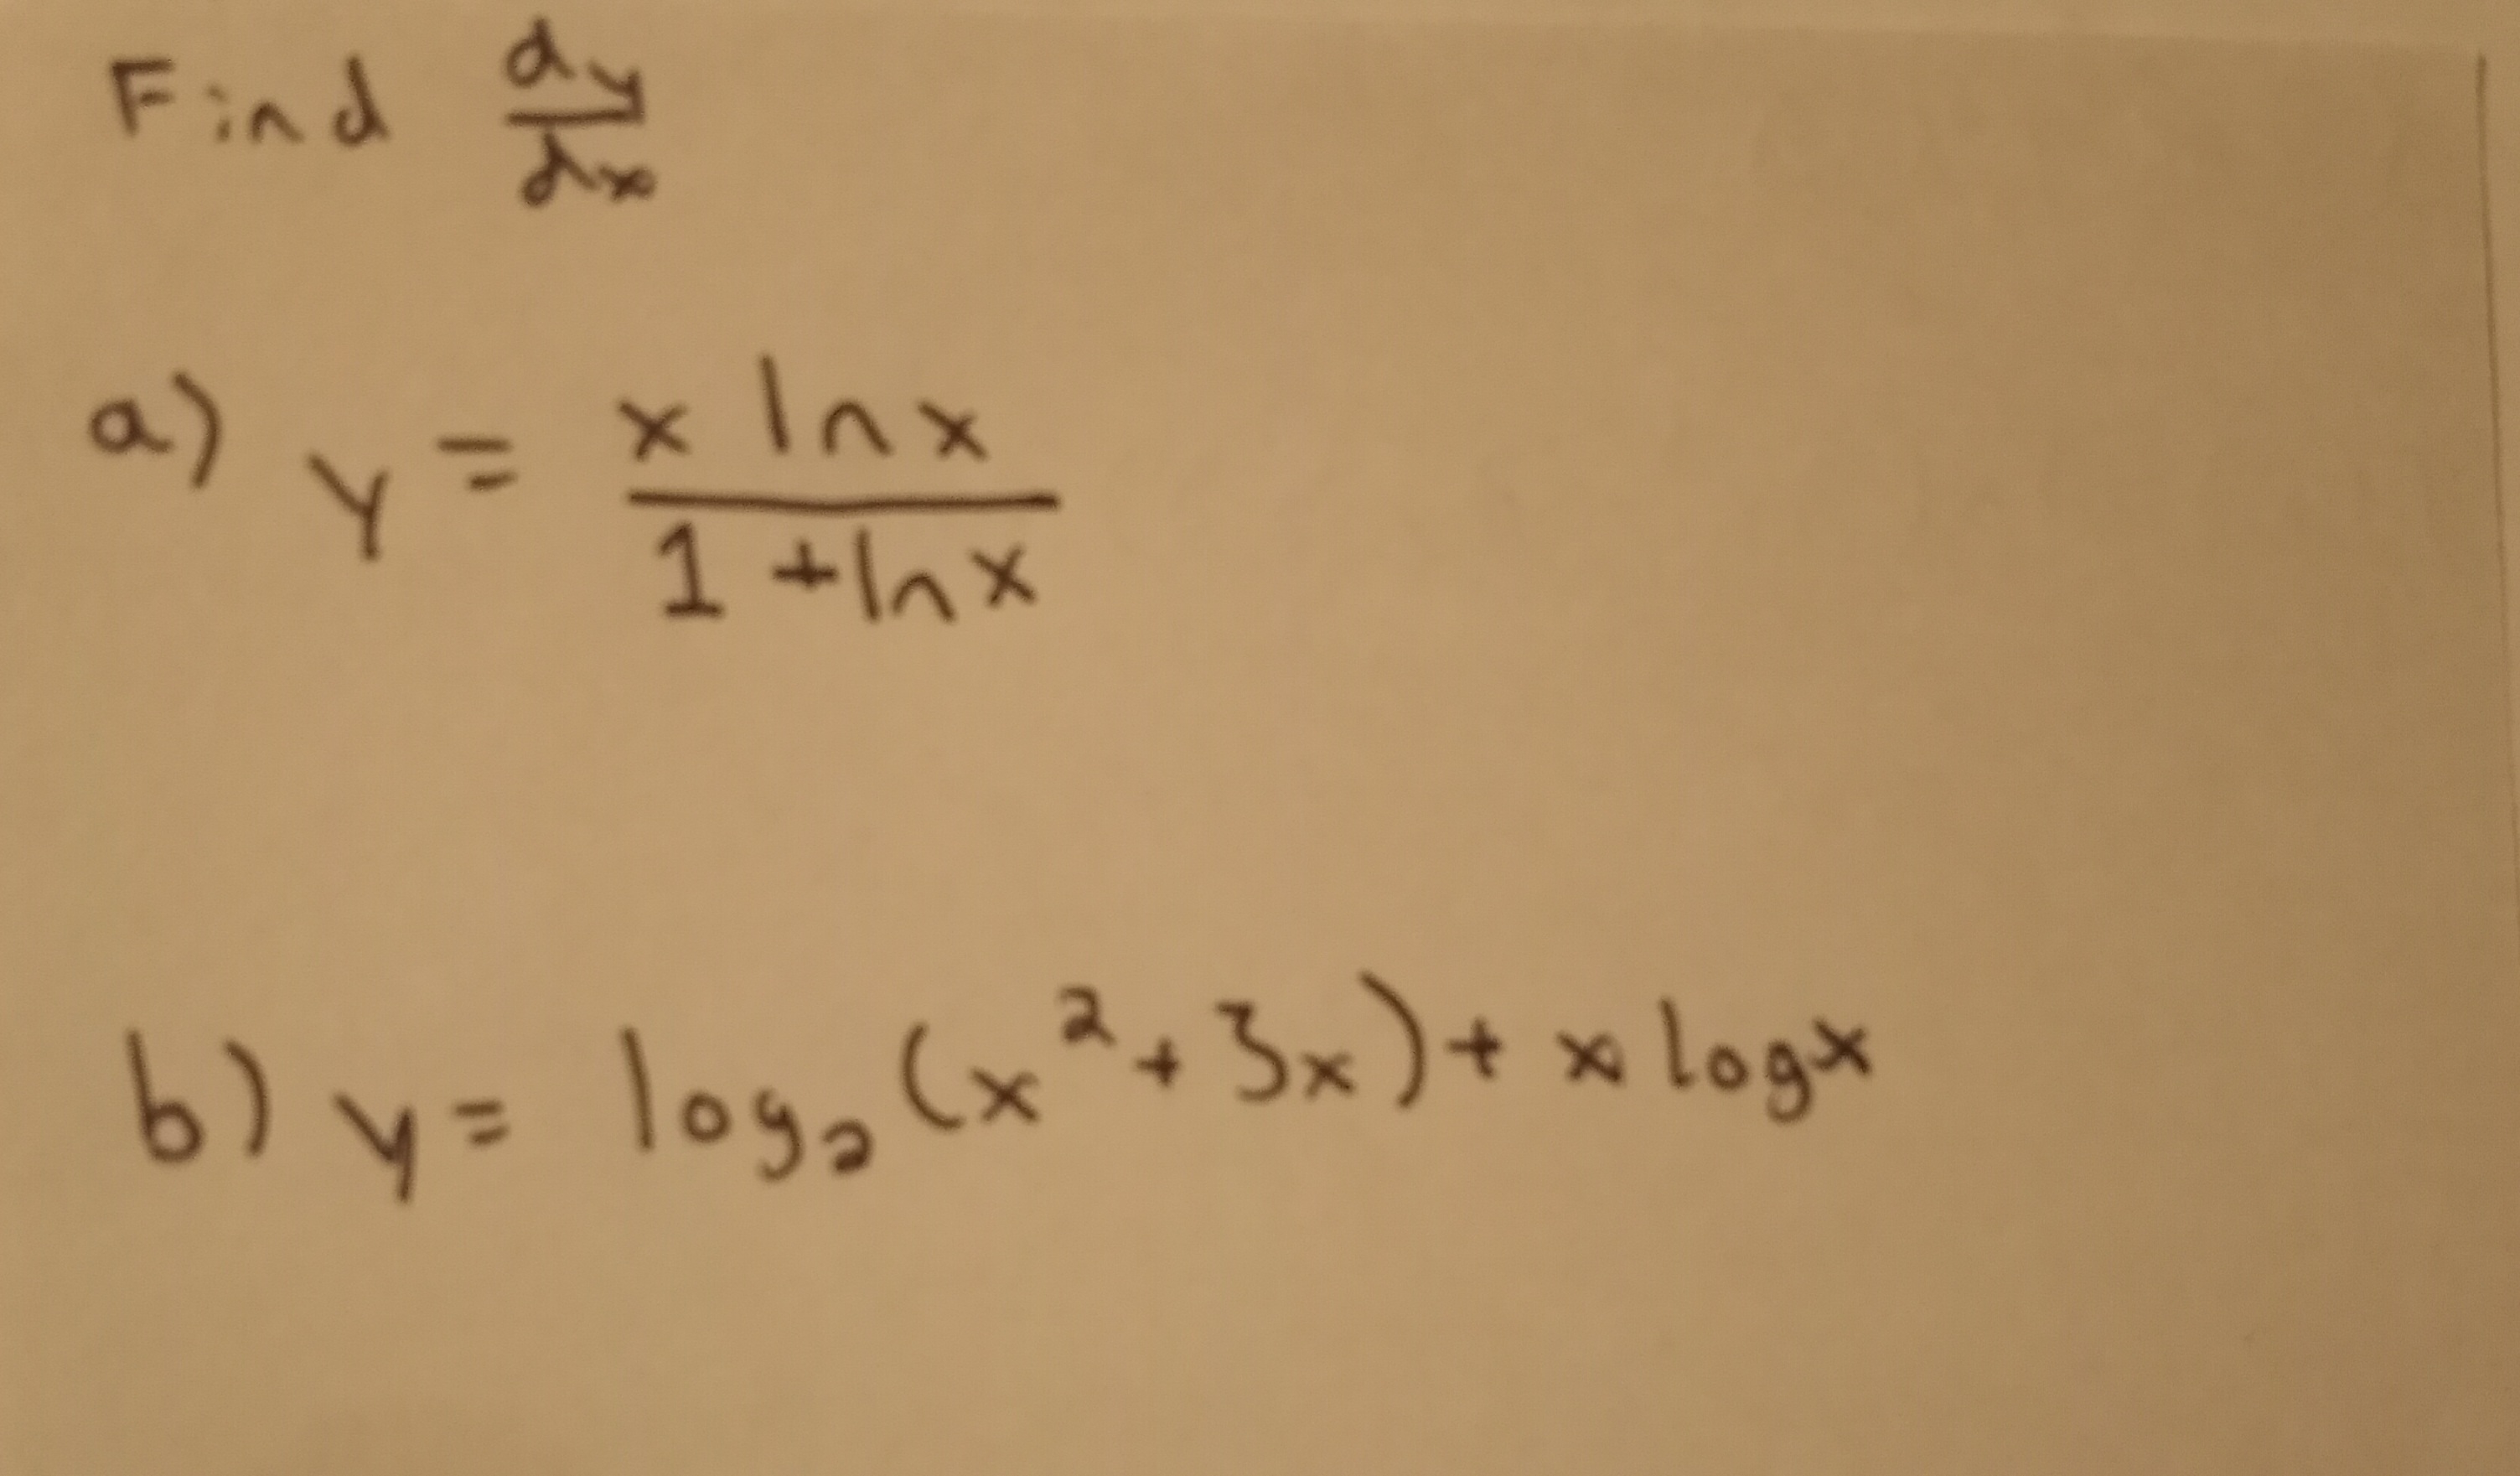 Find dy/dx
a) y = x ln x / 1 + ln x
b) y = log₂ (x² + 3x) + x log x